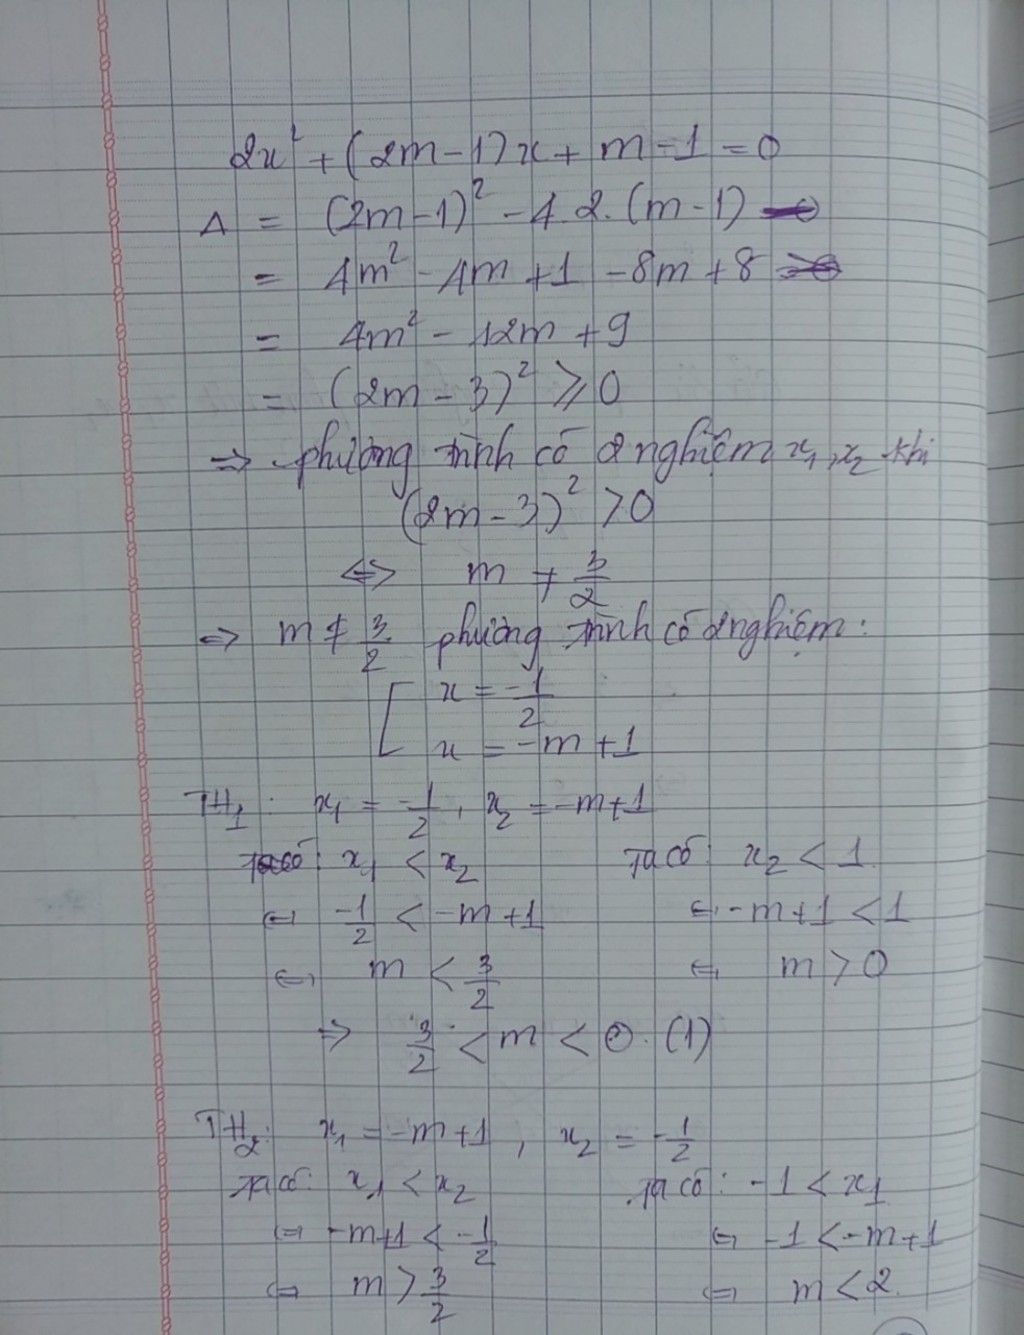 2x² + (2m-1)x + m-1 = 0
Δ = (2m-1)² - 4.2.(m-1)
= 4m² - 4m + 1 - 8m + 8
= 4m² - 12m + 9
= (2m - 3)² ⩾ 0
⇒ phương trình có 2 nghiệm x₁, x₂ khi
(2m - 3)² > 0
⇔ m ≠ 3/2
⇒ m ≠ 3/2 phương trình có 2 nghiệm:
[ x = -1/2
x = -m + 1
TH₁: x₁ = -1/2, x₂ = -m+1
Ta có: x₁ < x₂ Ta có: x₂ < 1
⇔ -1/2 < -m+1 ⇔ -m+1 < 1
⇔ m < 3/2 ⇔ m > 0
⇒ 3/2 < m < 0. (1)
TH₂: x₁ = -m+1, x₂ = -1/2
Ta có: x₁ < x₂ Ta có: -1 < x₁
⇔ -m+1 < -1/2 ⇔ -1 < -m+1
⇔ m > 3/2 ⇔ m < 2.